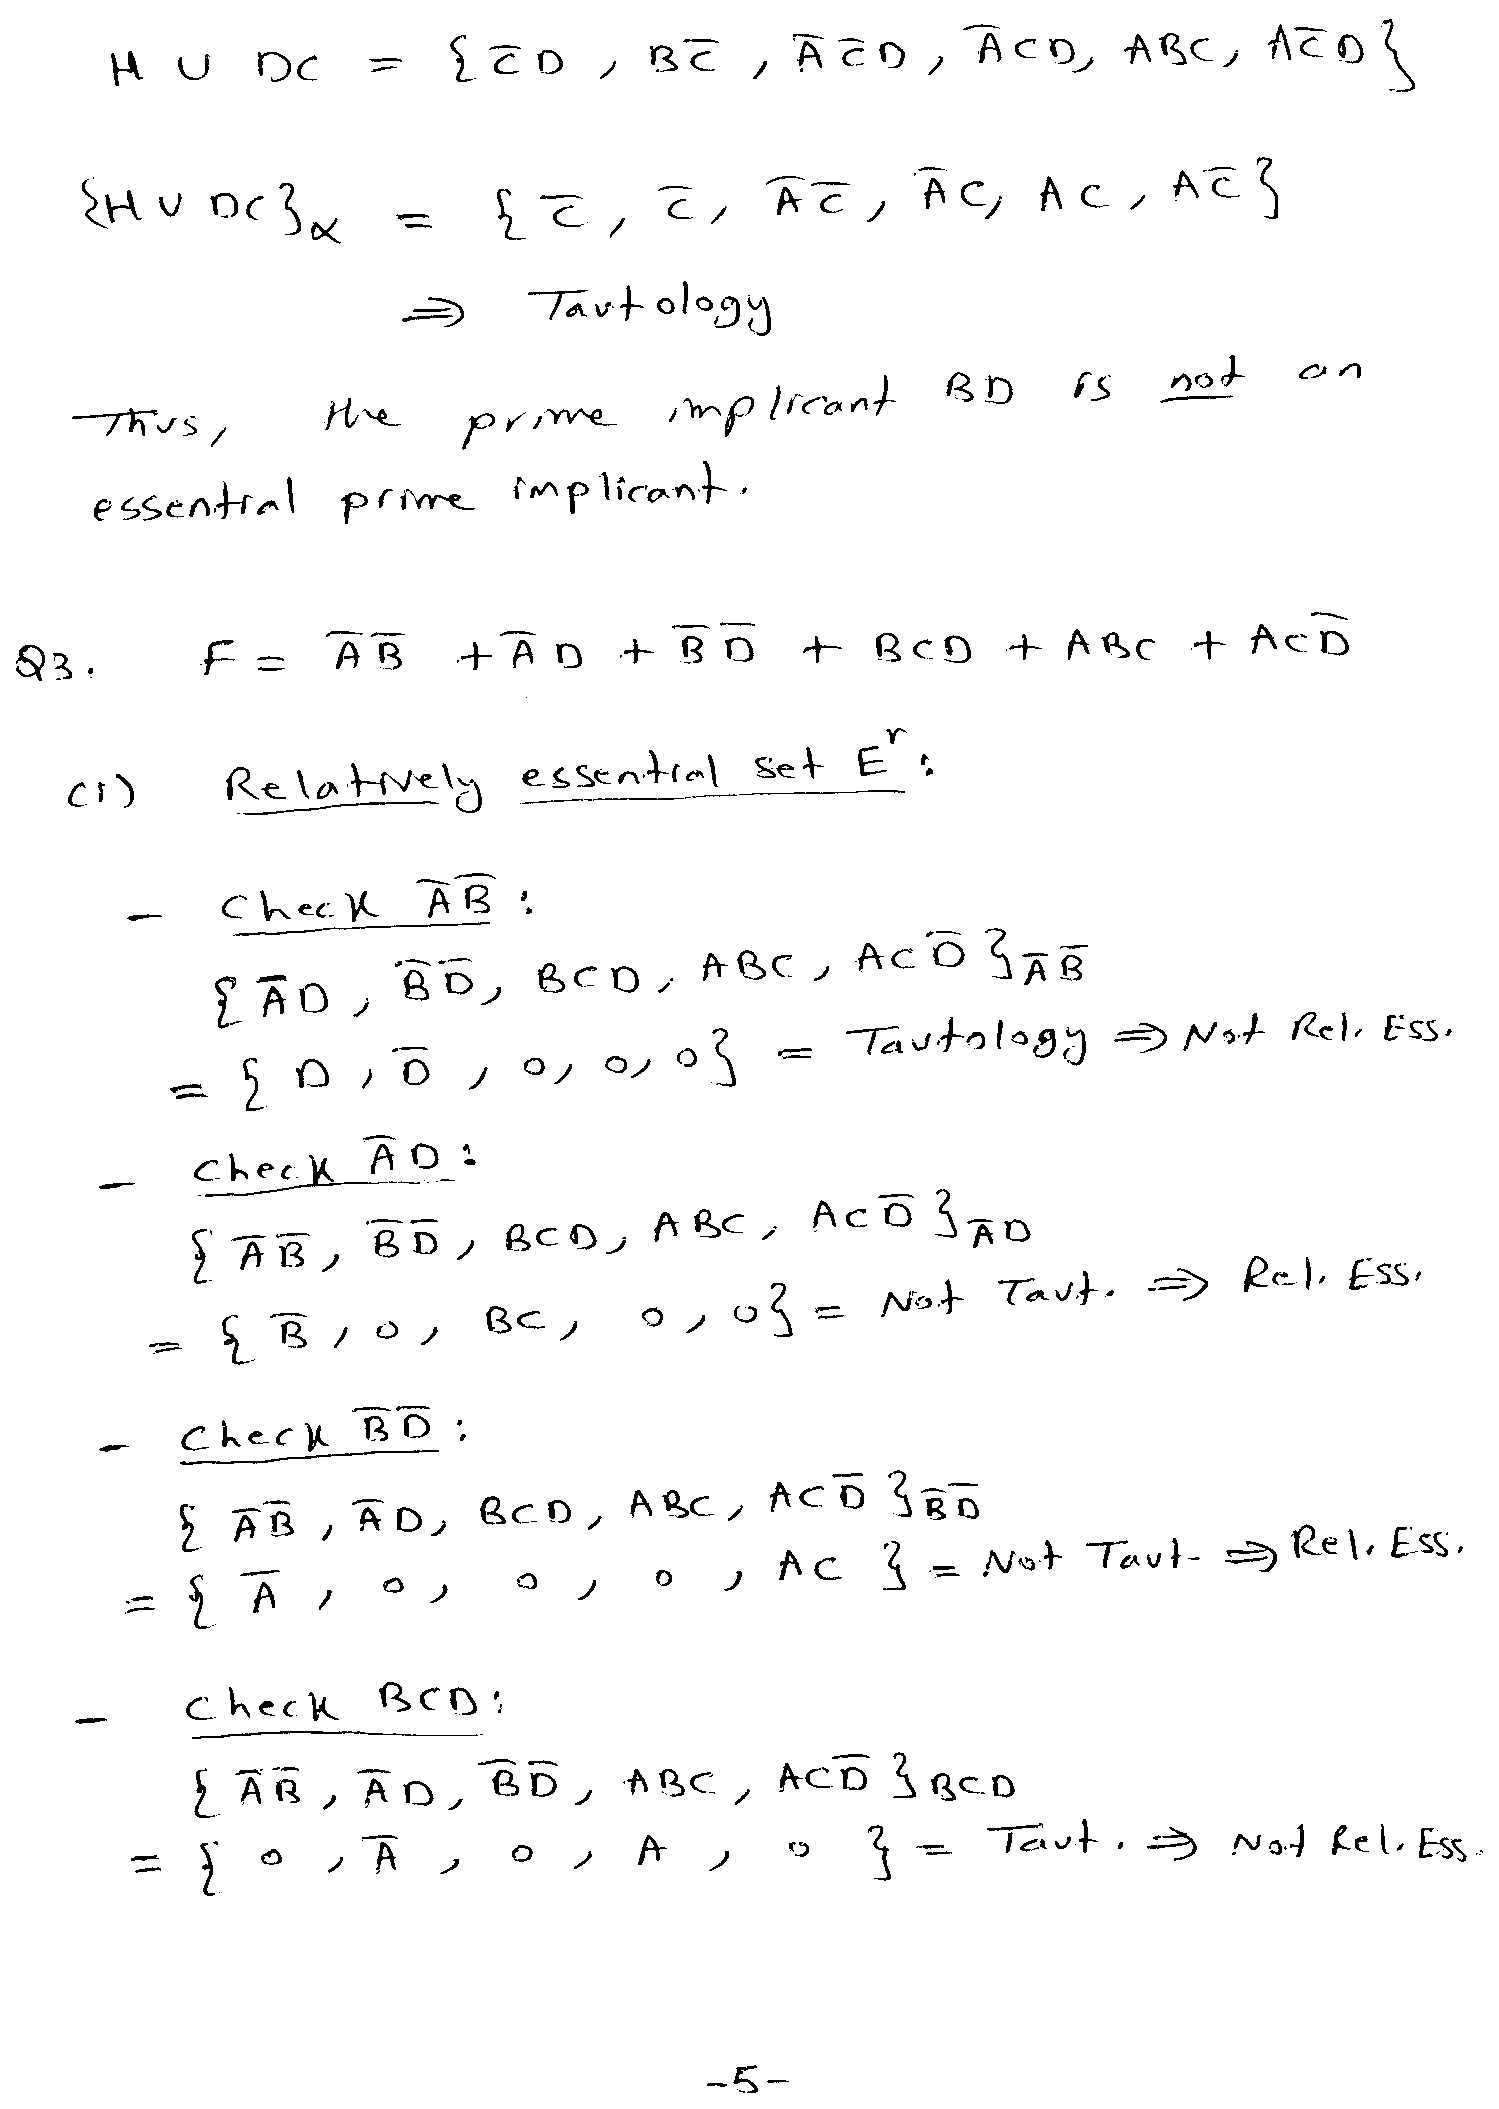 H ∪ DC = {C̅D, BC̅, A̅C̅D, A̅CD, ABC, AC̅D}
{H ∪ DC}α = {C̅, C̅, A̅C̅, A̅C, AC, AC̅}
⇒ Tautology
Thus, the prime implicant BD is not an
essential prime implicant.
Q3. F = A̅B̅ + A̅D + B̅D̅ + BCD + ABC + ACD̅
(1) Relatively essential set Eʳ:
- Check A̅B̅:
{A̅D, B̅D̅, BCD, ABC, ACD̅}A̅B̅
= {D, D̅, 0, 0, 0} = Tautology ⇒ Not Rel. Ess.
- Check A̅D:
{A̅B̅, B̅D̅, BCD, ABC, ACD̅}A̅D
= {B̅, 0, BC, 0, 0} = Not Taut. ⇒ Rel. Ess.
- Check B̅D̅:
{A̅B̅, A̅D, BCD, ABC, ACD̅}B̅D̅
= {A̅, 0, 0, 0, AC} = Not Taut. ⇒ Rel. Ess.
- Check BCD:
{A̅B̅, A̅D, B̅D̅, ABC, ACD̅}BCD
= {0, A̅, 0, A, 0} = Taut. ⇒ Not Rel. Ess.
-5-